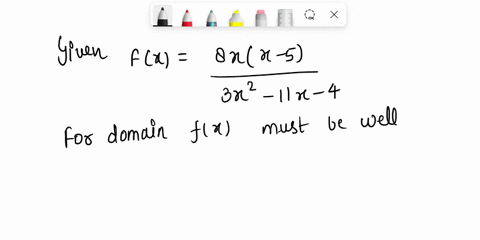 Given f(x) = 8x(x-5) / 3x² - 11x - 4
For domain f(x) must be well